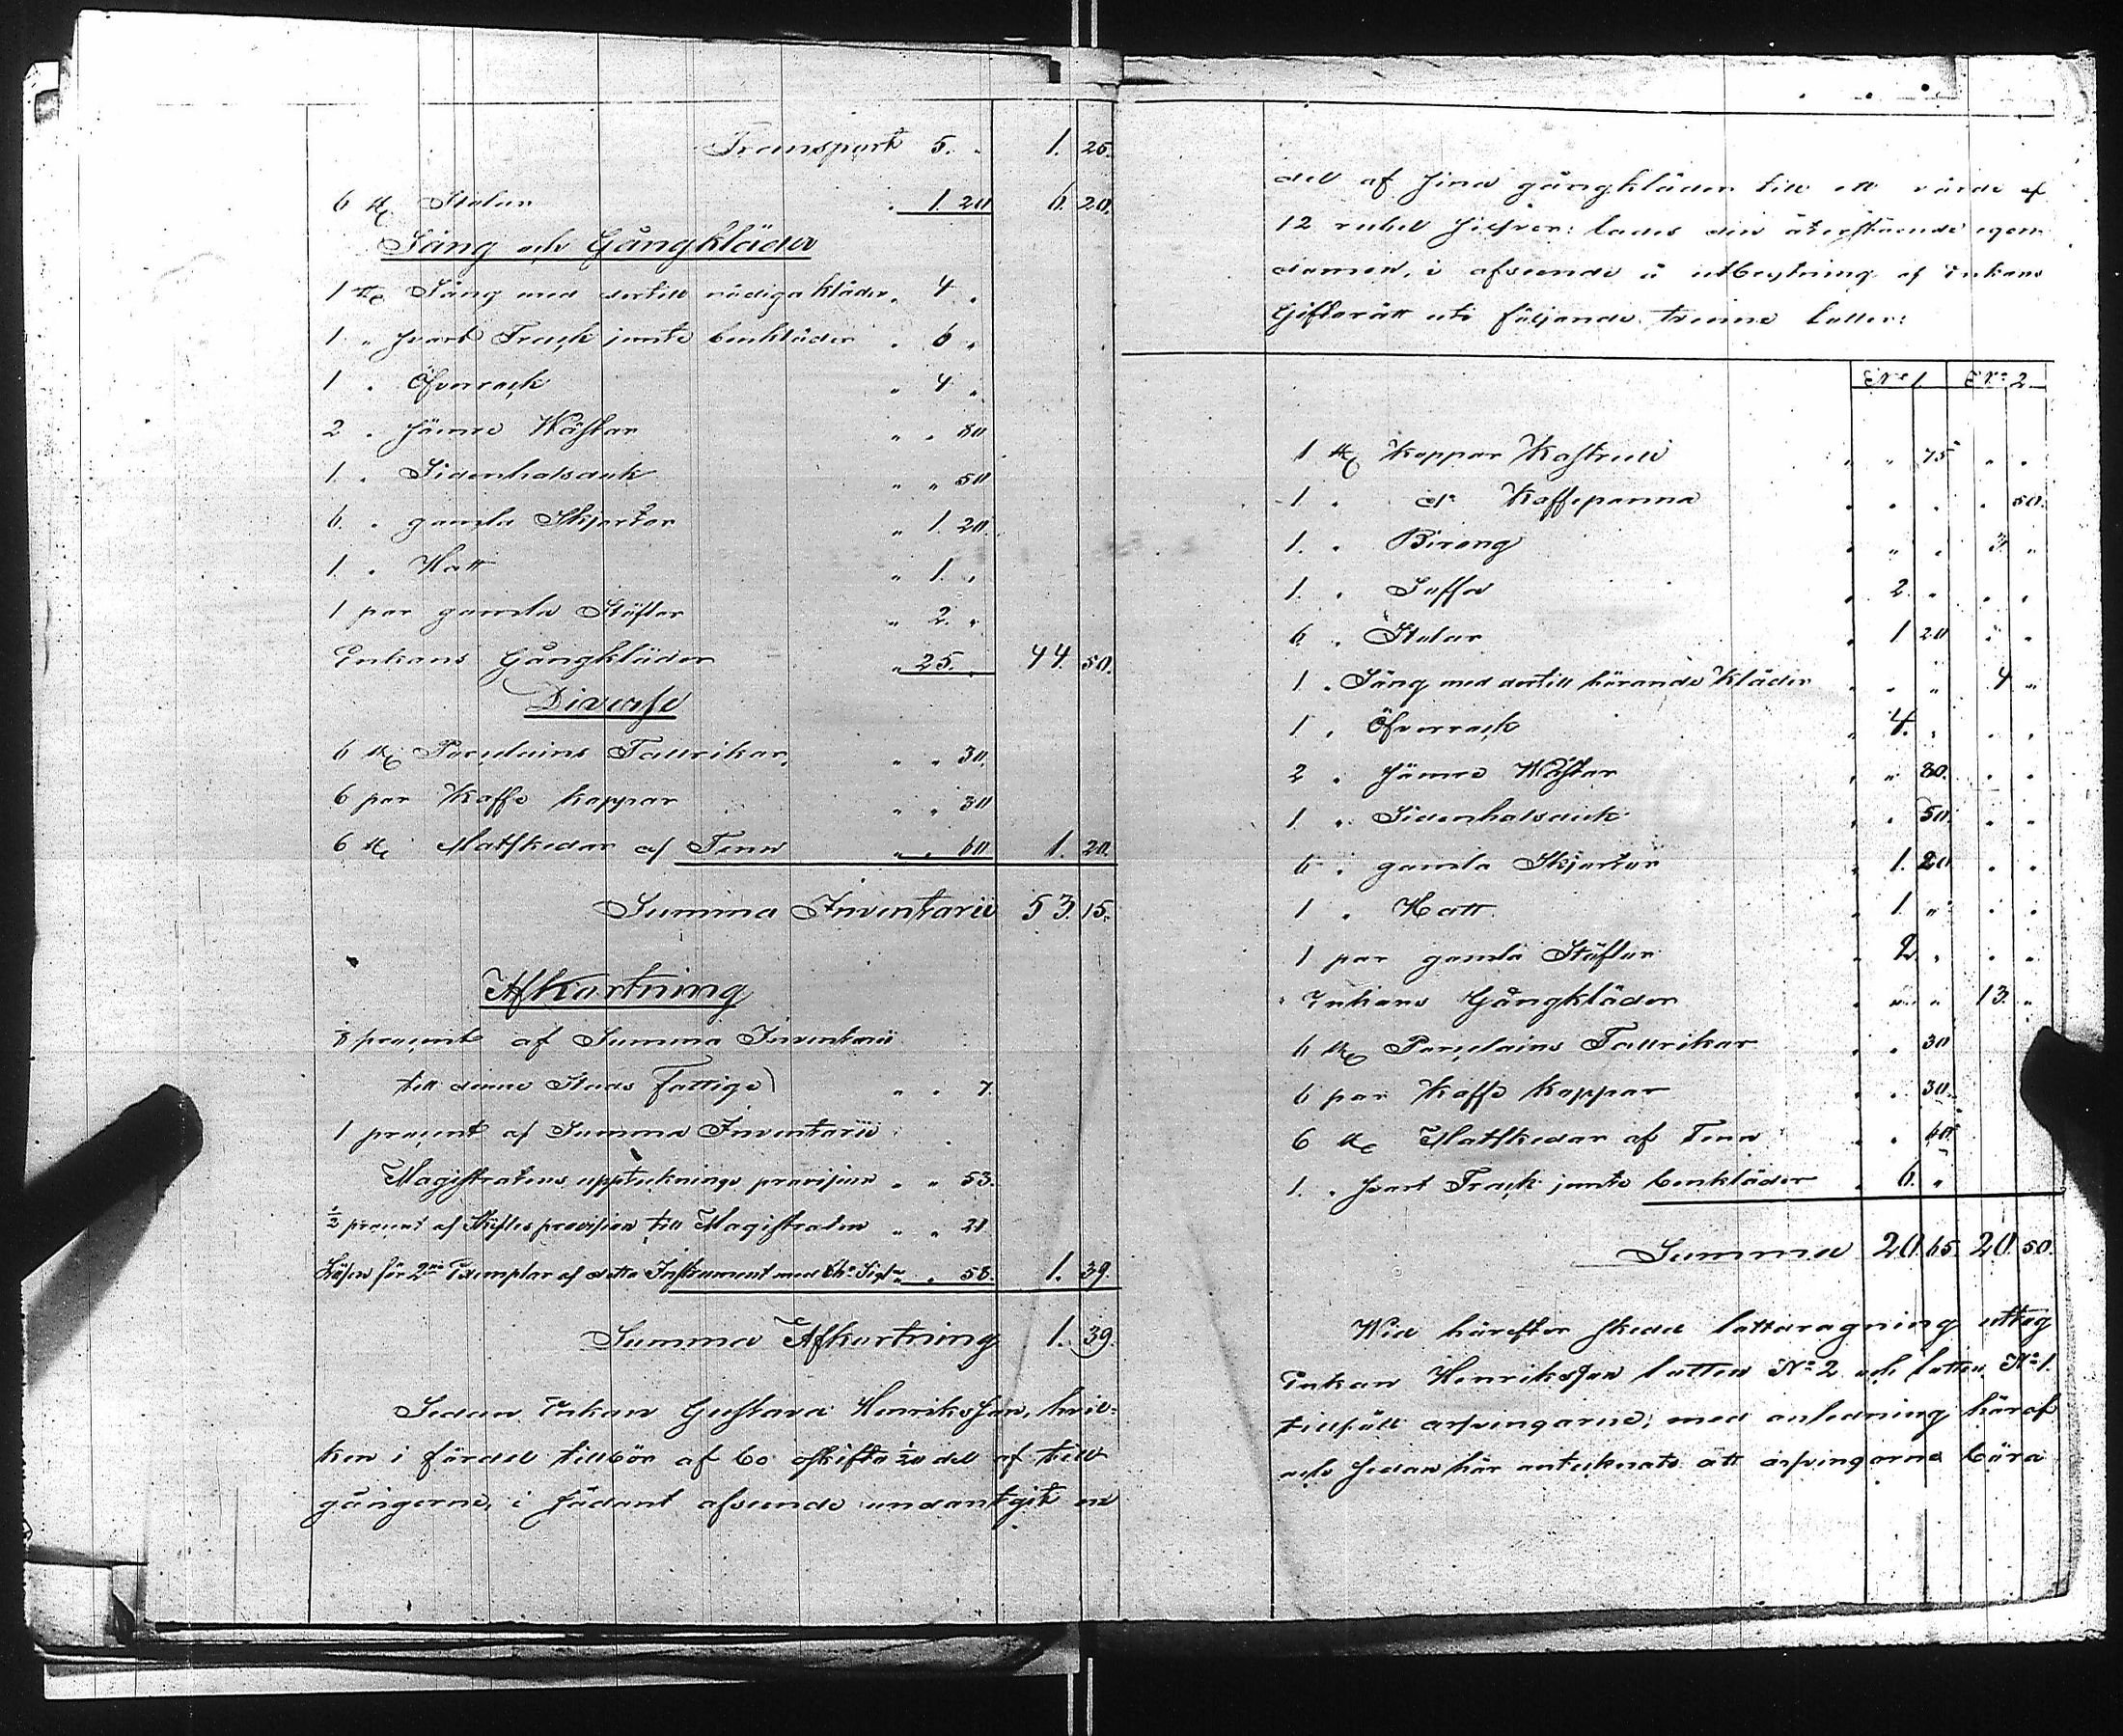 Transport 5. " 1. 25.
6 st. Stolar " 1. 20 6. 20.
Säng och Gångkläder
1 st. Säng med dertill nödiga kläder " 4 "
1 " svart Frack jemte benkläder " 6 "
1 " Öfverrock " 4 "
2 " sämre Wästar " " 80
1. " Sidenhalsduk " " 50
6. " gamla Skjortor " 1. 20.
1. " Hatt " 1. "
1 par gamla Stöflar " 2. "
Enkans Gångkläder " 25. " 44. 50.
Diverse
6 st. Porslains Tallrikar " " 30.
6 par Kaffe koppar " " 30
6 st. Matskedar af Tenn " " 60 1. 20.
Summa Inventarii 53. 15.
Afkortning
1/8 procent af Summa Inventarii
till denne Stads Fattige " " 7.
1 procent af Summa Inventarii
Magistratens upptecknings provision " " 53.
1/2 procent af Skiftes provision till Magistraten " " 21.
Lösen för 2ne Exemplar af detta Instrument med " 58. 1. 39.
Summa Afkortning 1. 39.
Sedan Enkan Gustava Henriksson, hvil-
ken i fördel tillkör af bo oskifto 1/20 del af till
gångerne, i sådant afseende undantagit en
del af sina gångkläder till ett värde af
12 rubel Silfver: lades den återstående egen
domen, i afseende å utbrytning af enkans
Giftorätt uti följande tvenne lotter:
No 1 No 2.
1 st. Koppar Kastrull " " 75 " "
1 " do Kaffepanna " " " " 50.
1. " Birong " " " 3. "
1. " Soffa " 2. " " "
6 " Stolar " 1 20 " "
1 " Säng med dertill hörande kläder " " " 4 "
1 " Öfverrock " 4. " " "
2 " sämre Wästar " " 80. " "
1 " Sidenhalsduk " " 50. " "
6 " gamla Skjortor " 1. 20. " "
1 " Hatt " 1. " " "
1 par gamla Stöflar " 2 " " "
" Enkans Gångkläder " " " 13. "
6 st. Porslains Tallrikar " " 30
6 par Kaffe koppar " " 30.
6 st. Matskedar af Tenn " " 60.
1. " svart Frack jemte benkläder " 6. "
Summa 20 65. 20 50.
Wid härefter skedd lottdragning uttog
Enkan Henriksson lotten No 2 och lotten No 1.
tillföll arfvingarne; med anledning häraf
och sedan här antecknats att arfvingarne böra